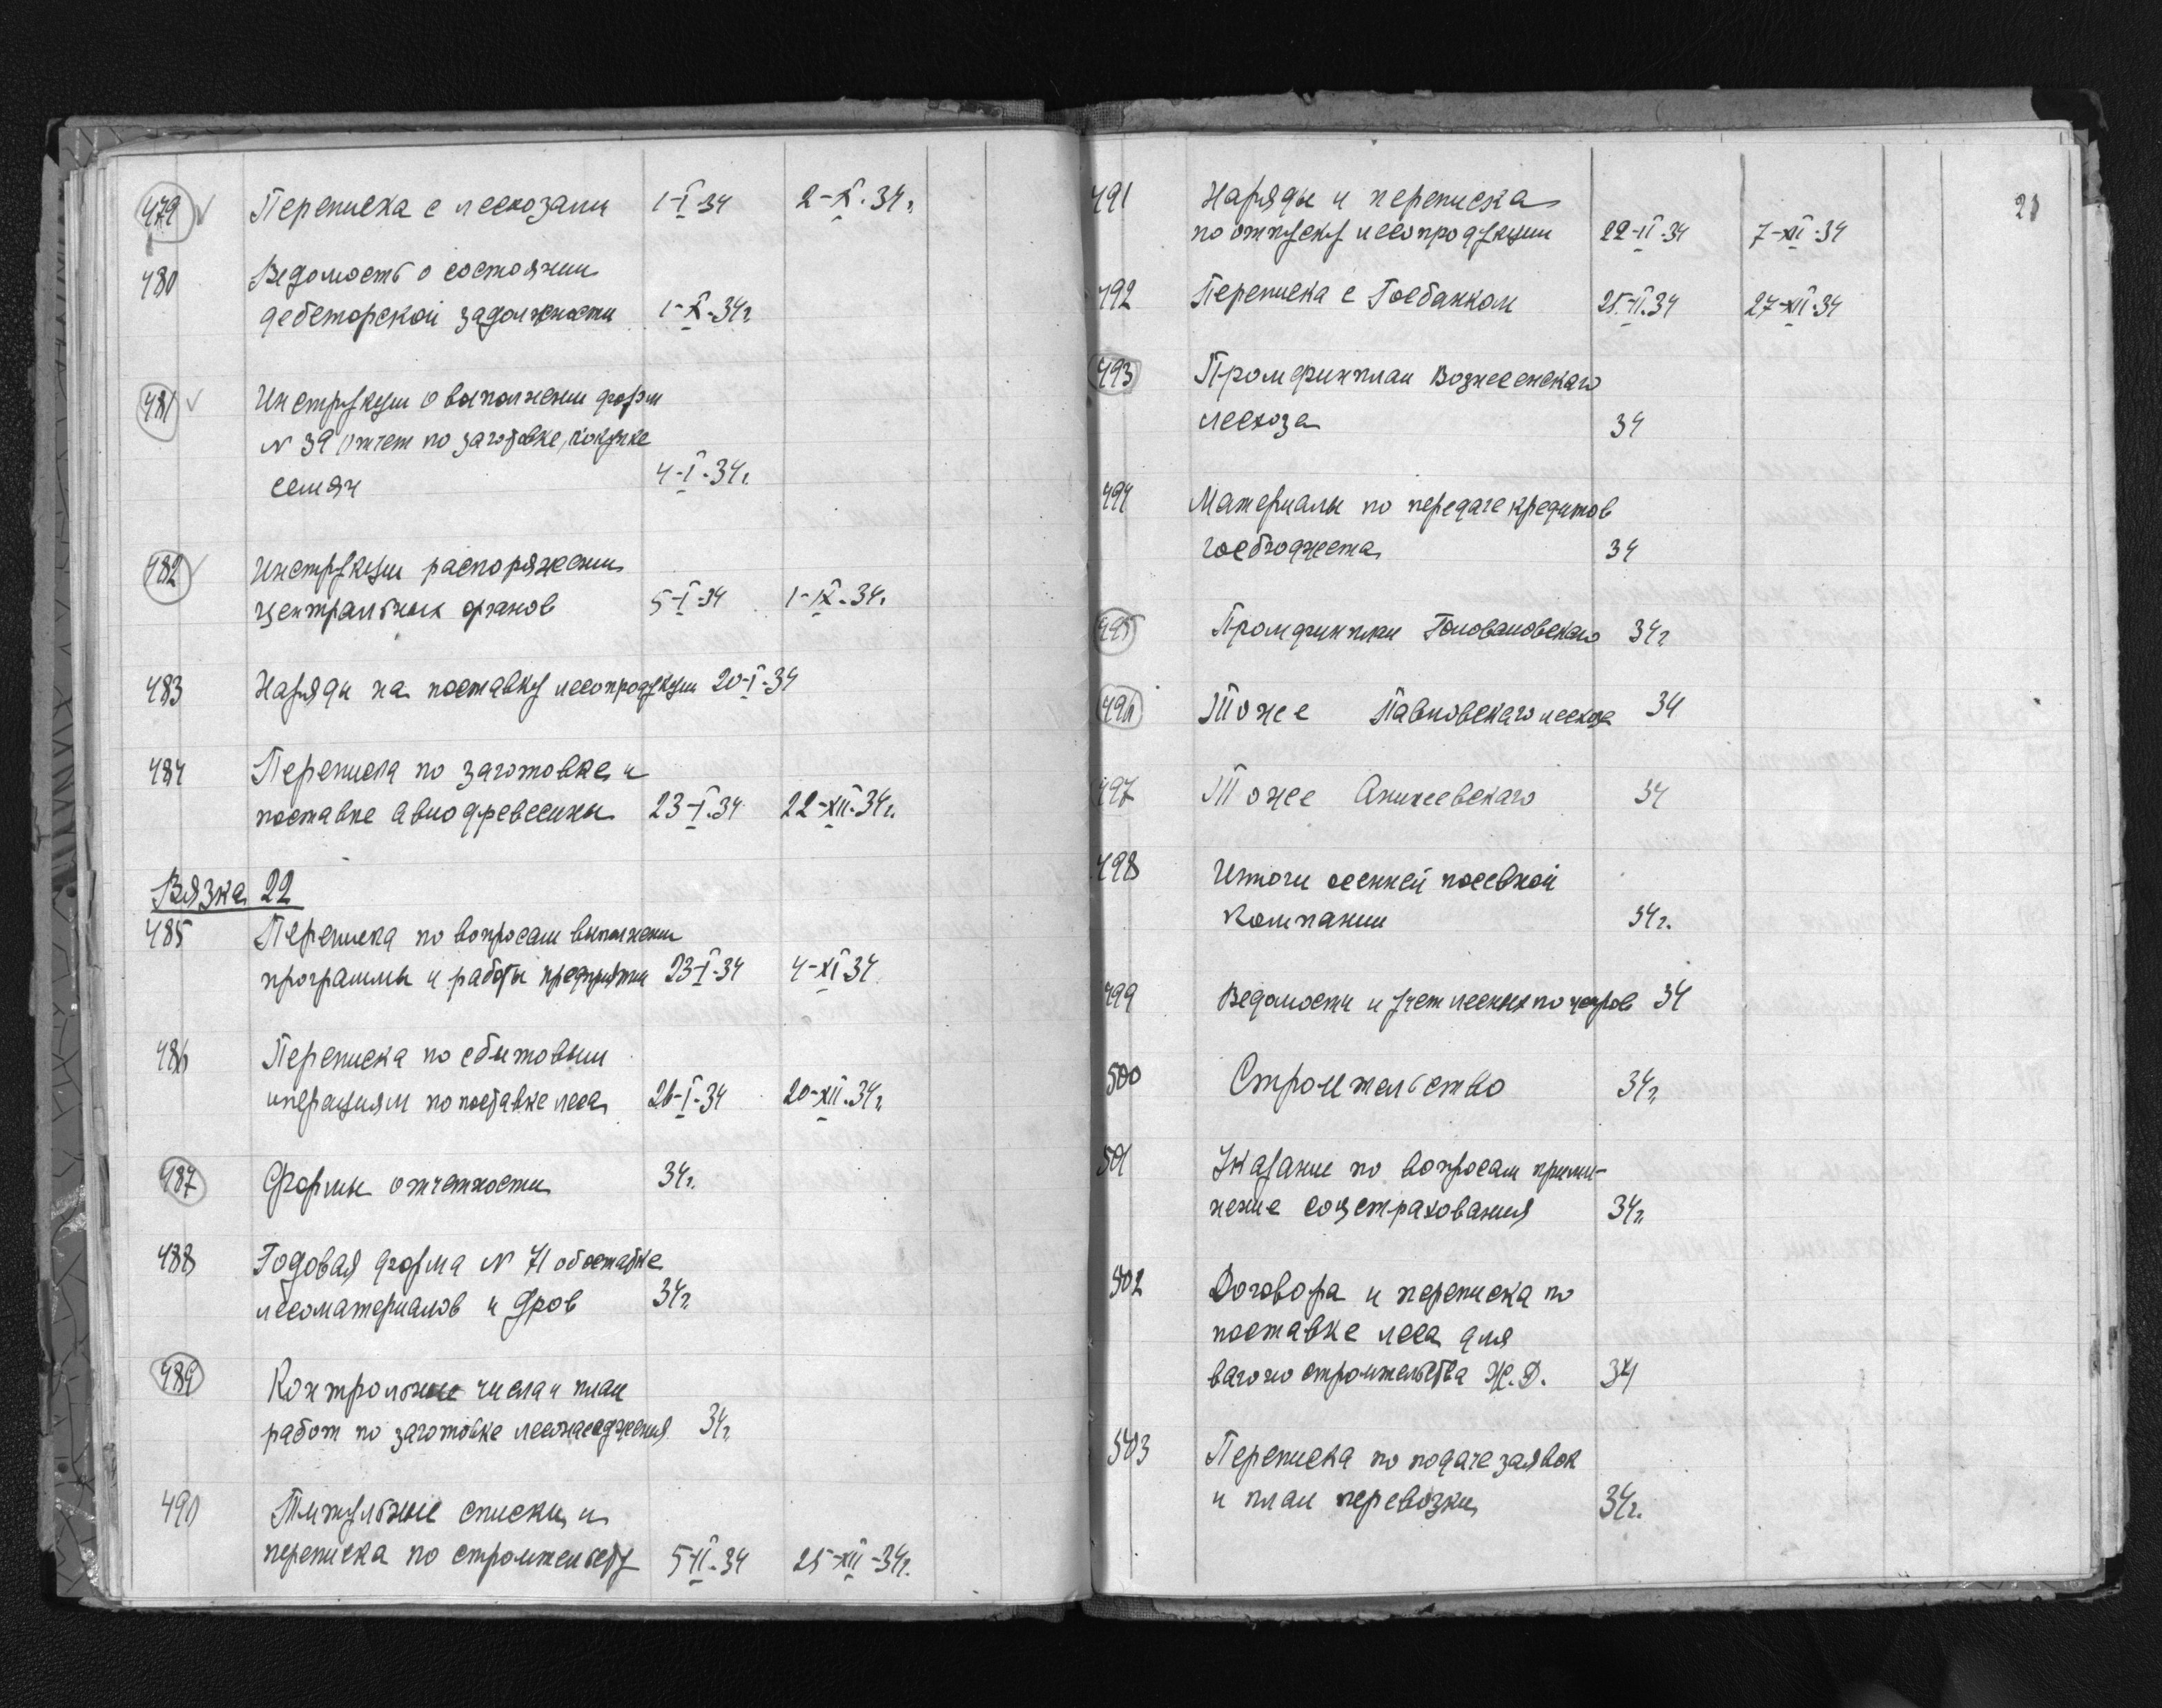 479 Переписка с лесхозами 1-I-34 2-X-34г.
480 Ведомость о состоянии
дебеторской задолжности 1-X-34г.
481 Инструкции о выполнении форм
N 39 отчет по заготовке, покупке
семян 4-I-34г.
482 Инструкции распоряжении
центральных органов 5-I-34 1-IX-34г.
483 Наряды на поставку лесопродукции 20-I-34
484 Переписка по заготовке и
поставке авиодревесины 23-I-34 22-XII-34г.
Вязка 22
485 Переписка по вопросам выполнении
программы и работы предприятии 23-I-34 4-XI-34
486 Переписка по сбытовым
операциям по поставке леса 26-I-34 20-XII-34г.
487 Формы отчетности 34г.
488 Годовая форма N 71 об остатке
лесоматериалов и дров 34г.
489 Контрольные числа и план
работ по заготовке лесонасаждения 34г.
490 Титульные списки и
переписка по строительству 5-II-34 25-XII-34г.
21
491 Наряды и переписка
по отпуску лесопродукции 22-II-34 7-XI-34
492 Переписка с Госбанком 25-II-34 27-XII-34
493 Промфинплан Вознесенскаго
лесхоза 34
494 Материалы по передаче кредитов
госбюджета 34
495 Промфинплан Голованевскаго 34г
496 Тоже Павловскаго лесхоза 34
497 Тоже Аникеевскаго 34
498 Итоги осенней посевной
компании 34г.
499 Ведомости и учет лесных пожаров 34
500 Строительство 34г.
501 Указание по вопросам приме-
нение соцстрахования 34г.
502 Договора и переписка по
поставке леса для
вагоностроительства Ж.Д. 34
503 Переписка по подаче заявок
и план перевозки 34г.